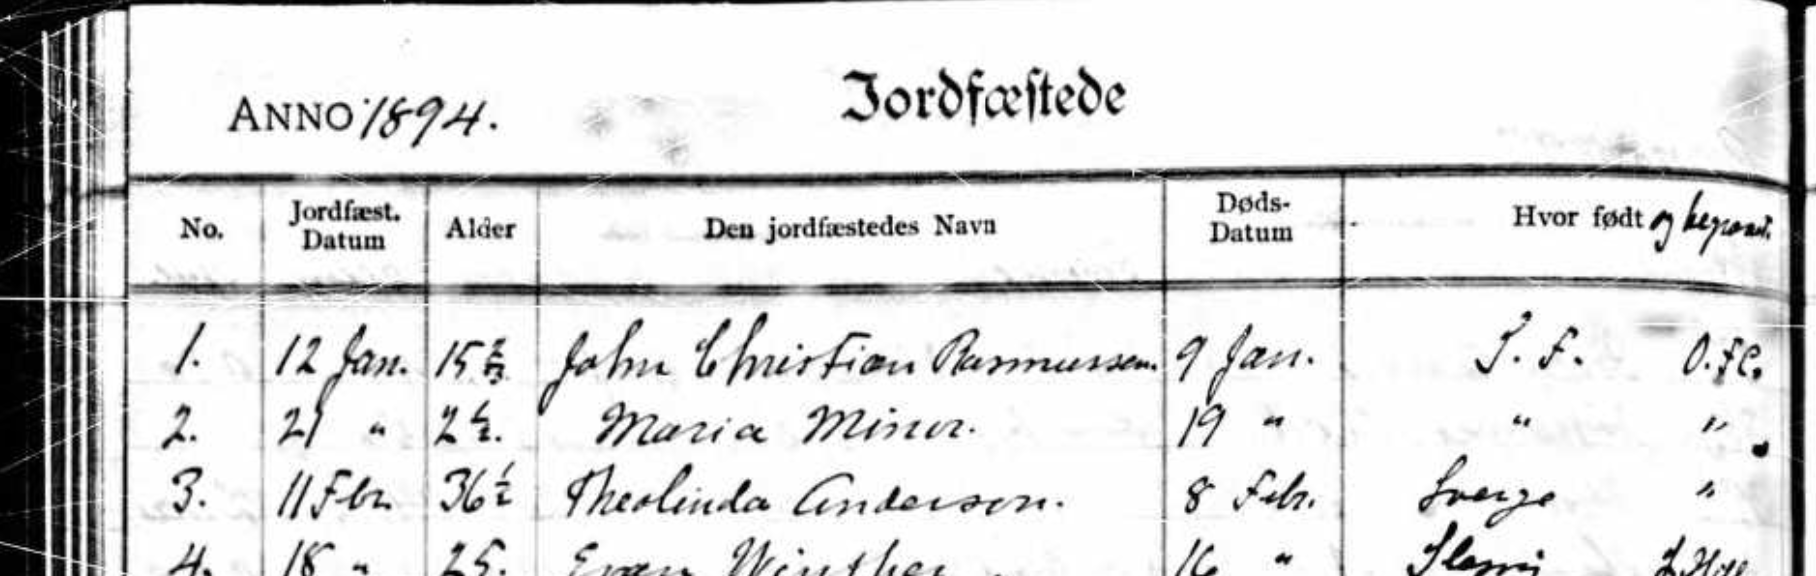 ANNO 1894.
Jordfæstede
No. Jordfæst. Datum Alder Den jordfæstedes Navn Døds-Datum Hvor født og
1. 12 Jan. 15 John Christian Rasmussen. 9 Jan. S. F. O. Fl.
2. 21 " 2 Maria Minor. 19 " " "
3. 11 Febr. 36½ Theolinda Anderson. 8 Febr. Sverge "
4. 18 " 25. Winther 16 "